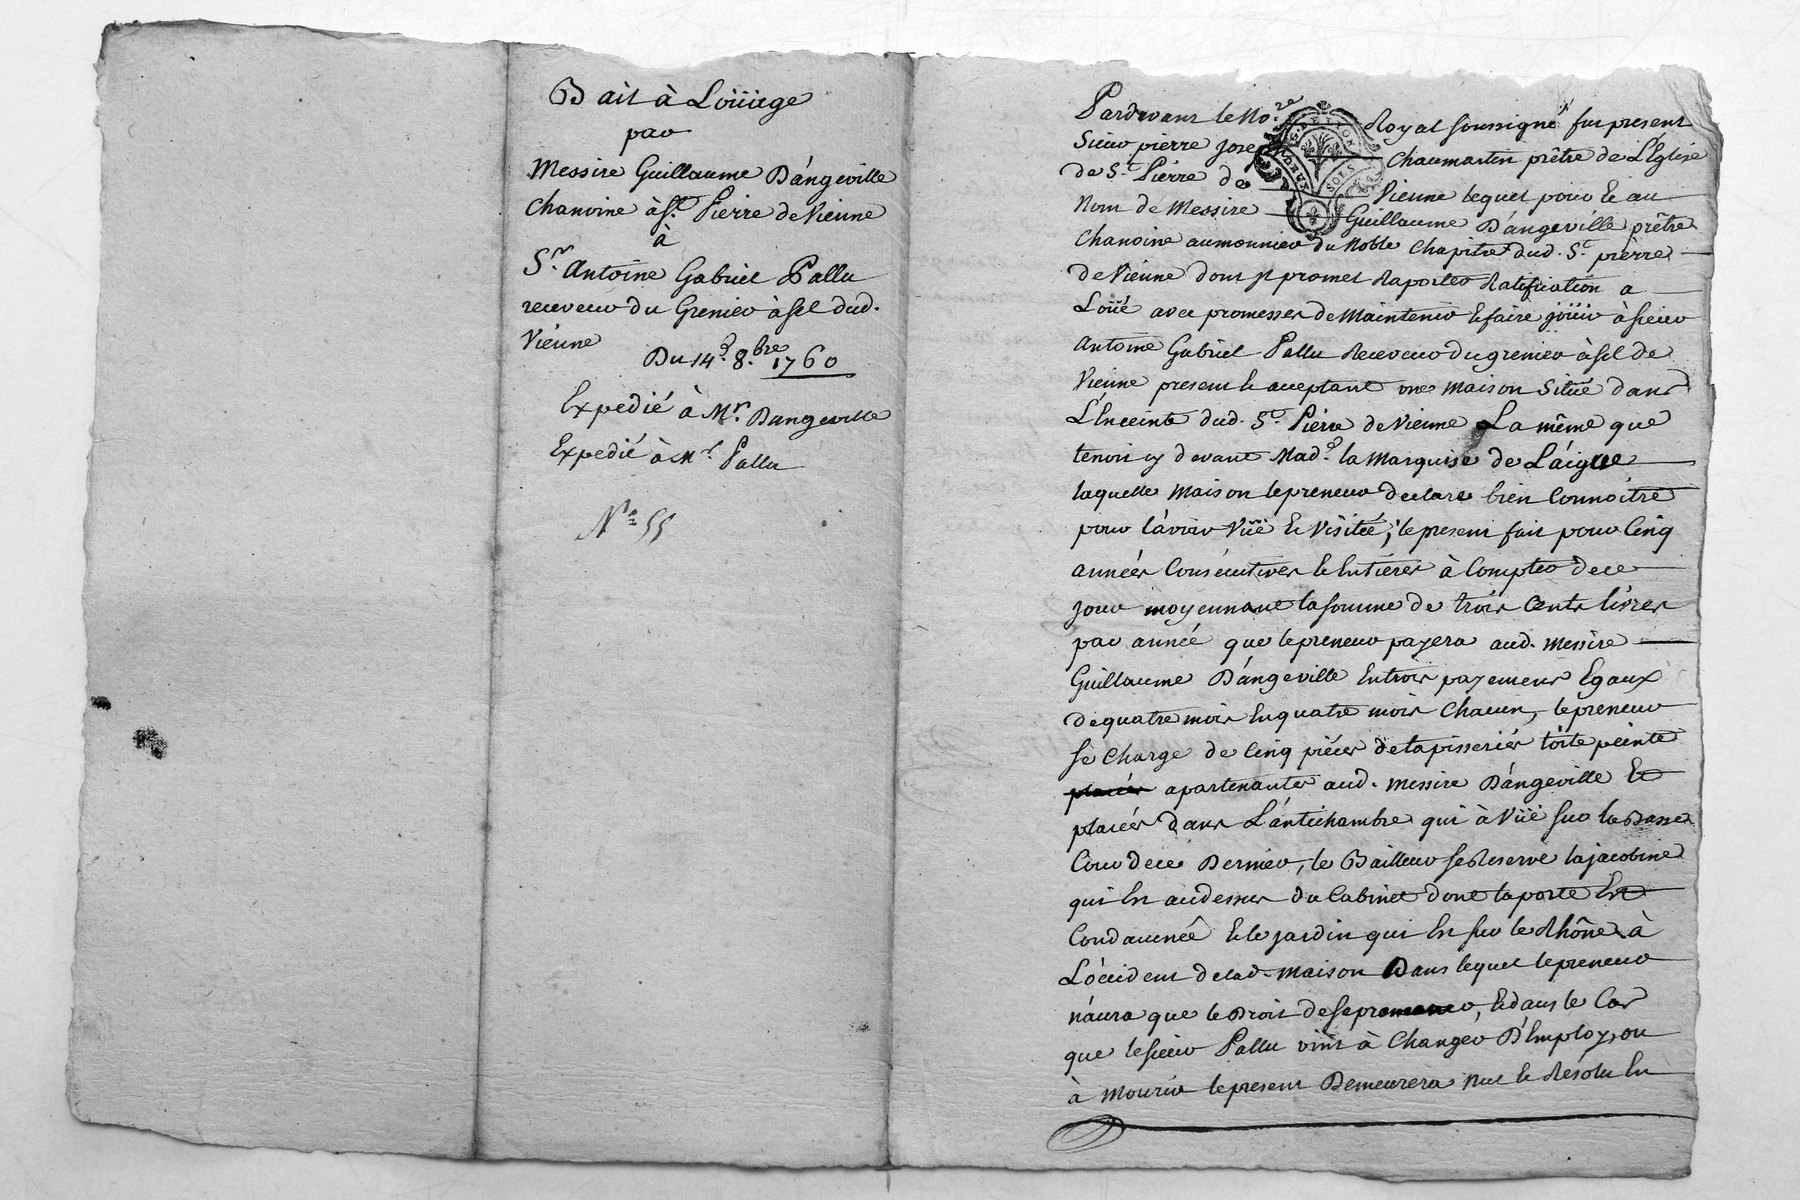 Bail à Loüiage
par
Messire Guillaume D'angeville
Chanoine à St. Pierre de Vienne
à
Sr. Antoine Gabriel Pallu
receveur du Grenier à sel dud.
Viénne
Du 14e. 8.bre 1760
Expedié à Mr. Dangeville
Expedié à Mr. Pallu
N° 55
Pardevant le No.re Royal soussigné fut present
Sieur pierre joseph Chaumartin prêtre de L'Eglise
de St. Pierre de Vienne lequel pour et au
Nom de Messire Guillaume D'angeville prêtre
Chanoine aumonnier du Noble Chapitre dud. St. pierre
de Viénne dont jl promet Raporter Ratification a
Loüé avec promesses de Maintenir et faire joüir à sieur
Antoine Gabriel Pallu Receveur du grenier à sel de
Vienne present et acceptant une Maison Située dans
L'Enceinte dud. St. Pierre de Vienne La même que
tenoit cy devant Made. la Marquise de L'aigue
laquelle Maison le preneur declare bien Connoître
pour l'avoir Vüe et Visitée; le present fait pour Cinq
années Consécutives et Entieres à Compter de ce
jour moyennant la somme de trois Cents livres
par année que le preneur payera aud. Messire
Guillaume D'angeville En trois payements Egaux
de quatre mois En quatre mois Chacun, le preneur
se Charge de Cinq piéces de tapisseries toile peinte
placées apartenantes aud. Messire D'angeville Et
placées dans L'antichambre qui à Vüe sur la Basse
Cour de ce Dernier, le Bailleur se Reserve la jacobine
qui Est au dessus du Cabinet dont la porte Est
Condamnée et le jardin qui Est sur le Rhône à
L'occident de lad. Maison Dans lequel le preneur
n'aura que le Droit de se promener, et dans le Cas
que le sieur Pallu vint à Changer D'Employ, ou
à Mourir le present Demeurera Nul et Résolu En